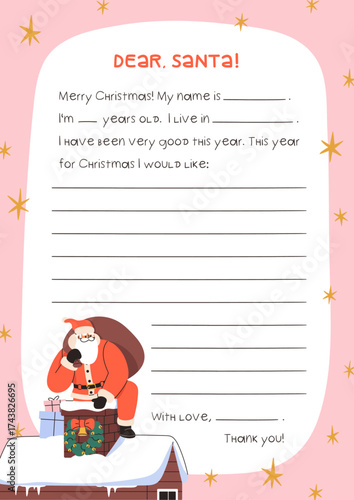 DEAR, SANTA!
Merry Christmas! My name is __________ .
I'm ___ years old. I live in __________ .
I have been very good this year. This year
for Christmas I would like:
With love, __________ .
Thank you!
Adobe Stock | #1743826695